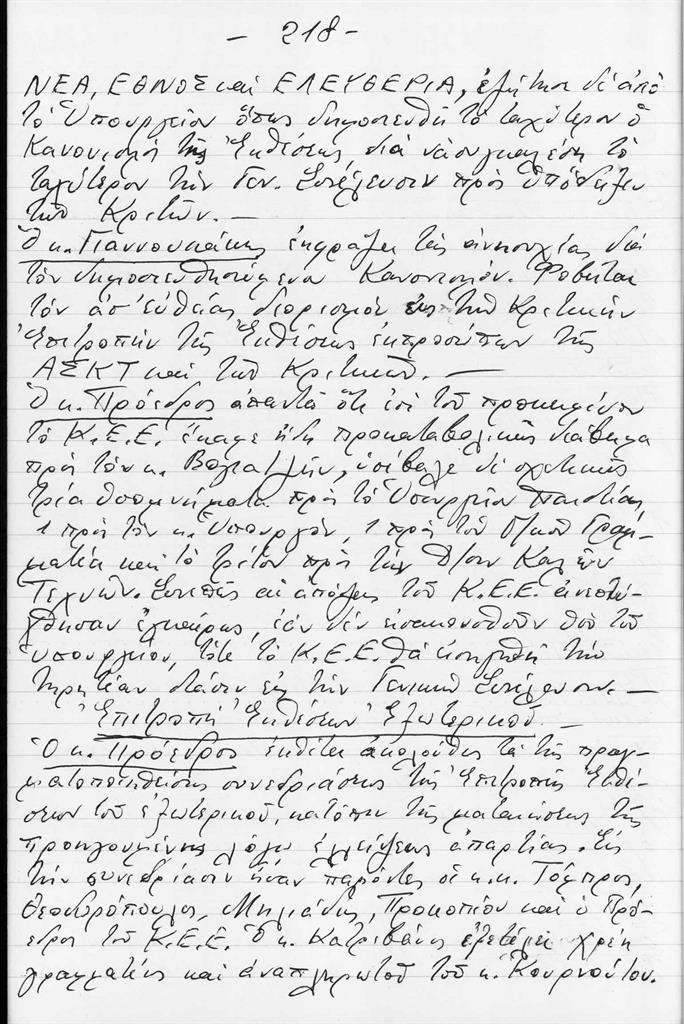 - 218 -
ΝΕΑ, ΕΘΝΟΣ καὶ ΕΛΕΥΘΕΡΙΑ, ἐζήτησε δὲ ἀπὸ
τὸ Ὑπουργεῖον ὅπως δημοσιευθῆ τὸ ταχύτερον ὁ
Κανονισμὸς τῆς Ἐκθέσεως, διὰ νὰ συγκαλέση τὸ
ταχύτερον τὴν Γεν. Συνέλευσιν πρὸς ὑπόδειξιν
τῶν Κριτῶν. —
Ὁ κ. Γιαννουκάκης ἐκφράζει τὰς ἀνησυχίας διὰ
τὸν δημοσιευθησόμενον Κανονισμόν. Φοβεῖται
τὸν ἀπ' εὐθείας διορισμὸν εἰς τὴν Κριτικὴν
Ἐπιτροπὴν τῆς Ἐκθέσεως ἐκπροσώπων τῆς
ΑΣΚΤ καὶ τῶν Κριτικῶν. —
Ὁ κ. Πρόεδρος ἀπαντᾶ ὅτι ἐπὶ τοῦ προκειμένου
τὸ Κ.Ε.Ε. ἔκαμε ἤδη προκαταβολικῶς διάβημα
πρὸς τὸν κ. ὑπέβαλε δὲ σχετικῶς
τρία ὑπομνήματα πρὸς τὸ Ὑπουργεῖον Παιδείας,
1 πρὸς τὸν κ. Ὑπουργόν, 1 πρὸς τὸν Γραμ-
ματέα καὶ τὸ τρίτον πρὸς τὴν Δ/σιν Καλῶν
Τεχνῶν. Συνεπῶς αἱ ἀπόψεις τοῦ Κ.Ε.Ε. ἀνεπτύ-
χθησαν ἐγκαίρως, ἐὰν δὲν εἰσακουσθοῦν ὑπὸ τοῦ
Ὑπουργείου, τότε τὸ Κ.Ε.Ε. θὰ εἰσηγηθῆ τὴν
τηρητέαν στάσιν εἰς τὴν Γενικὴν Συνέλευσιν. —
Ἐπιτροπὴ Ἐκθέσεων Ἐξωτερικοῦ. —
Ὁ κ. Πρόεδρος ἐκθέτει ἀκολούθως τὰ τῆς πραγ-
ματοποιηθείσης συνεδριάσεως τῆς Ἐπιτροπῆς Ἐκθέ-
σεων τοῦ ἐξωτερικοῦ, κατόπιν τῆς ματαιώσεως τῆς
προηγουμένης λόγω ἐλλείψεως ἀπαρτίας. Εἰς
τὴν συνεδρίασιν ἦσαν παρόντες οἱ κ.κ. Τόμπρος,
Θεοδωρόπουλος, Μηλιάδης, Προκοπίου καὶ ὁ Πρό-
εδρος τοῦ Κ.Ε.Ε. Ὁ κ. Κατριβάνης ἐξετέλει χρέη
γραμματέως καὶ ἀναπληρωτοῦ τοῦ κ. Κουρνούτου.